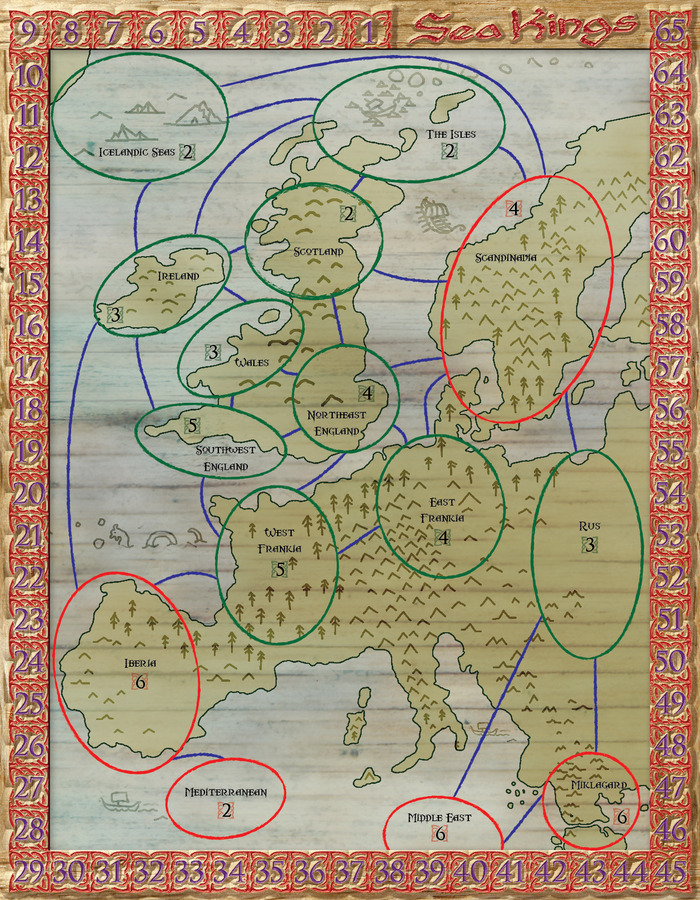 9 8 7 6 5 4 3 2 1 Sea Kings 65
10 64
11 63
12 62
13 61
14 60
15 59
16 58
17 57
18 56
19 55
20 54
21 53
22 52
23 51
24 50
25 49
26 48
27 47
28 46
29 30 31 32 33 34 35 36 37 38 39 40 41 42 43 44 45
Icelandic Seas 2
The Isles
2
4
Scandinavia
2
Scotland
Ireland
3
3
Wales
4
Northeast
England
5
Southwest
England
West
Frankia
5
East
Frankia
4
Rus
3
Iberia
6
Mediterranean
2
Middle East
6
Miklagard
6